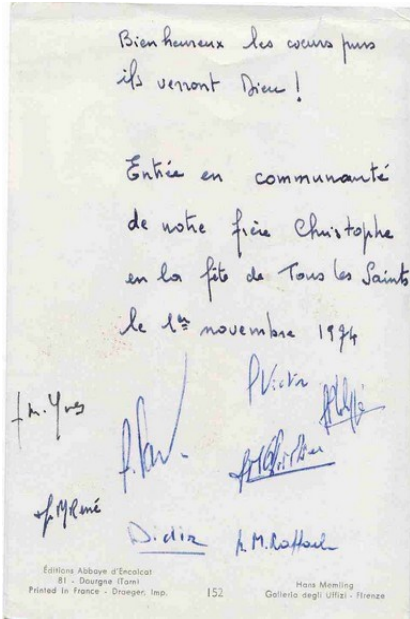 Bienheureux les cœurs purs
ils verront Dieu !
Entrée en communauté
de notre frère Christophe
en la fête de Tous les Saints
le 1er novembre 1974
f. Victor
f. m. Yves
f. M René
Didier
Éditions Abbaye d'Encalcat
81 - Dourgne (Tarn)
Printed in France - Draeger, Imp.
152
Hans Memling
Galleria degli Uffizi - Firenze